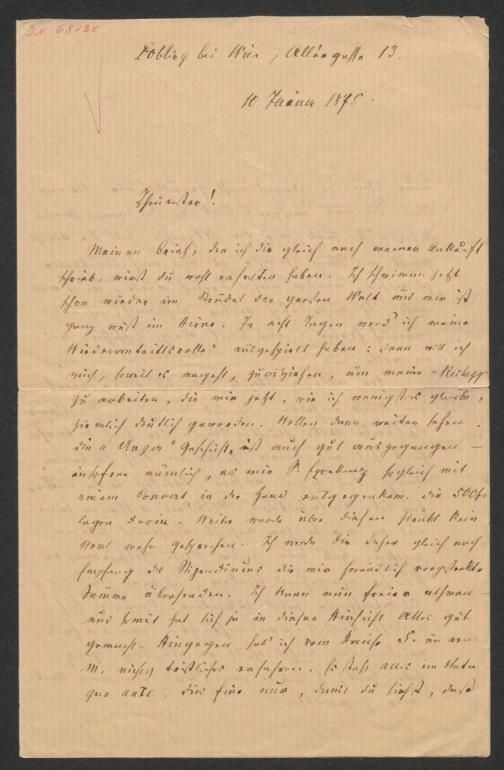 Döbling bei Wien, Allèegasse 13.
10 Jänner 1875.
Theuerster!
Meinen Brief, den ich dir gleich nach meiner Ankunft
schrieb, wirst du wohl erhalten haben. Ich schwimme jetzt
schon wieder im Strudel der großen Welt und mir ist
ganz wüst im Hirne. In acht Tagen werd' ich meine
"Wiederantrittsrolle" ausgespielt haben: dann will ich
mich, soweit es angeht, zurückziehen, um meine
zu arbeiten, die mir jetzt, wie ich wenigstens glaube,
ziemlich deutlich geworden. Wollen dann weiter sehen.
die "Unger" Geschichte ist auch gut ausgegangen —
insofern nämlich, als mir sogleich mit
einem Couvert in der Hand entgegenkam. die 500 fl
lagen darin. Weiter wurde über diesen Punkt kein
Wort mehr gesprochen. Ich werde Dir daher gleich nach
Empfang des Stipendiums die mir freundlich vorgestreckte
Summe übersenden. Ich kann nun freier athmen —
und somit hat sich ja in dieser Hinsicht Alles gut
gemacht. Hingegen hab' ich vom Hause S. in
M. nichts tröstliches erfahren. Es steht alles im statu
quo ante. dies Eine nur, damit du siehst, daß